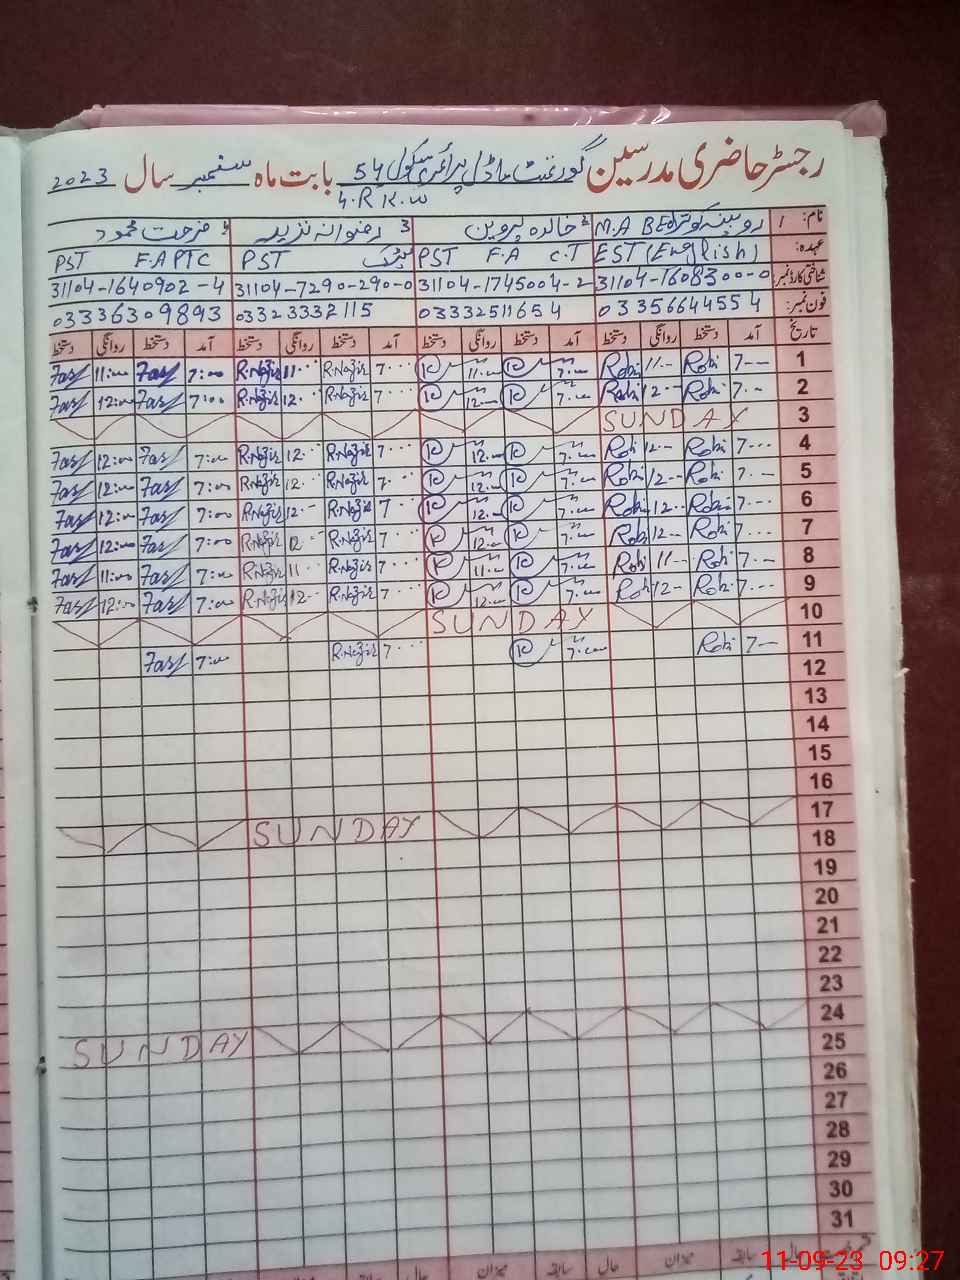 رجسٹر حاضری مدرسین گورنمنٹ ماڈل پرائمری سکول 54 بابت ماہ ستمبر سال 2023
4.R K.W
نام: 1 روبینہ کوثر M.A BEd 2 خالدہ پروین 3 رضوانہ نذیر فرحت محمود
عہدہ: EST (English) PST F.A C.T PST میٹرک PST F.A PTC
شناختی کارڈ نمبر: 31104-1608300-0 31104-1745004-2 31104-7290290-0 31104-1640902-4
فون نمبر: 03356644554 03332511654 03323332115 03336309893
تاریخ آمد دستخط روانگی دستخط آمد دستخط روانگی دستخط آمد دستخط روانگی دستخط آمد دستخط روانگی دستخط
1 7-- Robi 11-- Robi 7.00 11.00 7.00 R.Nazir 11.00 R.Nazir 7:00 11:00
2 7-- Robi 12-- Robi 7.00 12.00 7.00 R.Nazir 12.00 R.Nazir 7:00 12:00
3 SUNDAY
4 7-- Robi 12-- Robi 7.00 12.00 7.00 R.Nazir 12.00 R.Nazir 7:00 12:00
5 7-- Robi 12-- Robi 7.00 12.00 7.00 R.Nazir 12.00 R.Nazir 7:00 12:00
6 7-- Robi 12-- Robi 7.00 12.00 7.00 R.Nazir 12.00 R.Nazir 7:00 12:00
7 7-- Robi 12-- Robi 7.00 12.00 7.00 R.Nazir 12.00 R.Nazir 7:00 12:00
8 7-- Robi 11-- Robi 7.00 11.00 7.00 R.Nazir 11.00 R.Nazir 7:00 11:00
9 7-- Robi 12-- Robi 7.00 12.00 7.00 R.Nazir 12.00 R.Nazir 7:00 12:00
10 SUNDAY
11 7-- Robi 7.00 7.00 R.Nazir 7:00
12
13
14
15
16
17 SUNDAY
18
19
20
21
22
23
24 SUNDAY
25
26
27
28
29
30
31
حال سابقہ میزان حال سابقہ میزان حال سابقہ
11-09-23 09:27